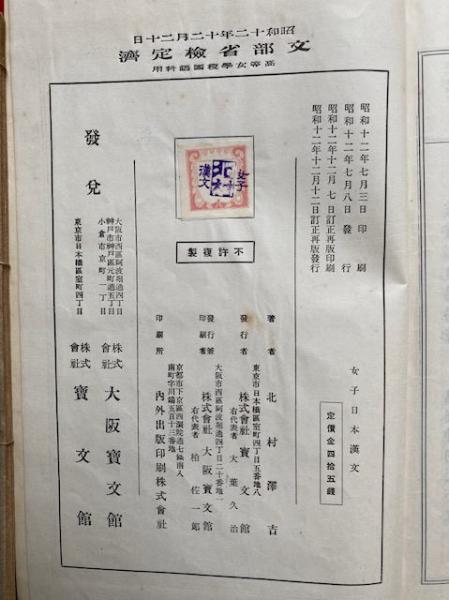 昭和十二年十二月二十日
文部省檢定濟
高等女學校國語科用
昭和十二年七月三日印刷
昭和十二年七月八日發行
昭和十二年十二月七日訂正再版印刷
昭和十二年十二月十二日訂正再版發行
女子日本漢文
定價金四拾五錢
女子
漢文
不許複製
著者 北村澤吉
東京市日本橋區室町四丁目五番地八
發行者 株式會社寶文館
右代表者 大葉久治
大阪市西區阿波堀通四丁目二十番地一
發行兼印刷者 株式會社大阪寶文館
右代表者 柏佐一郎
京都市下京區西洞院通七條南入
南町字川端五百十三番地
印刷所 內外出版印刷株式會社
發兌
大阪市西區阿波堀通四丁目
神戶市神戶區元町通五丁目
小倉市京町一丁目
株式會社 大阪寶文館
東京市日本橋區室町四丁目
株式會社 寶文館